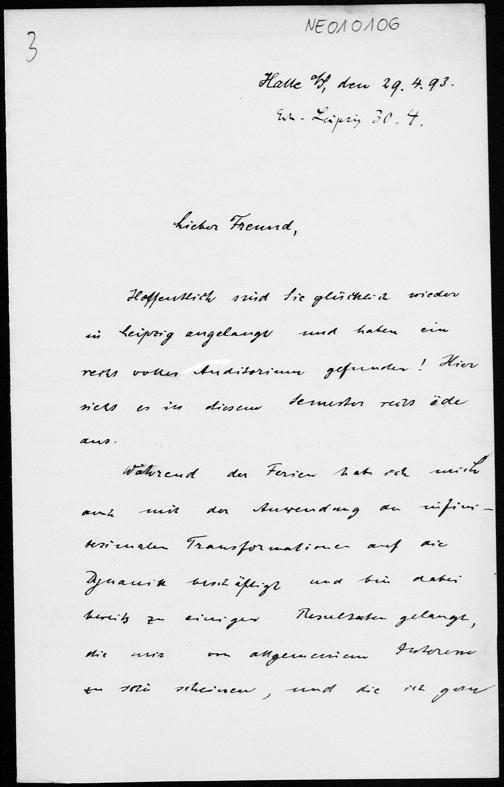 NE010106
3
Halle a/S, den 29.4.93.
Leipzig 30.4.
Lieber Freund,
Hoffentlich sind Sie glücklich wieder
in Leipzig angelangt und haben ein
recht volles Auditorium gefunden! Hier
sieht es in diesem Semester recht öde
aus.
Während der Ferien habe ich mich
auch mit der Anwendung der infini-
tesimalen Transformationen auf die
Dynamik beschäftigt und bin dabei
bereits zu einigen Resultaten gelangt,
die mir von allgemeinem Interesse
zu sein scheinen, und die ich gern